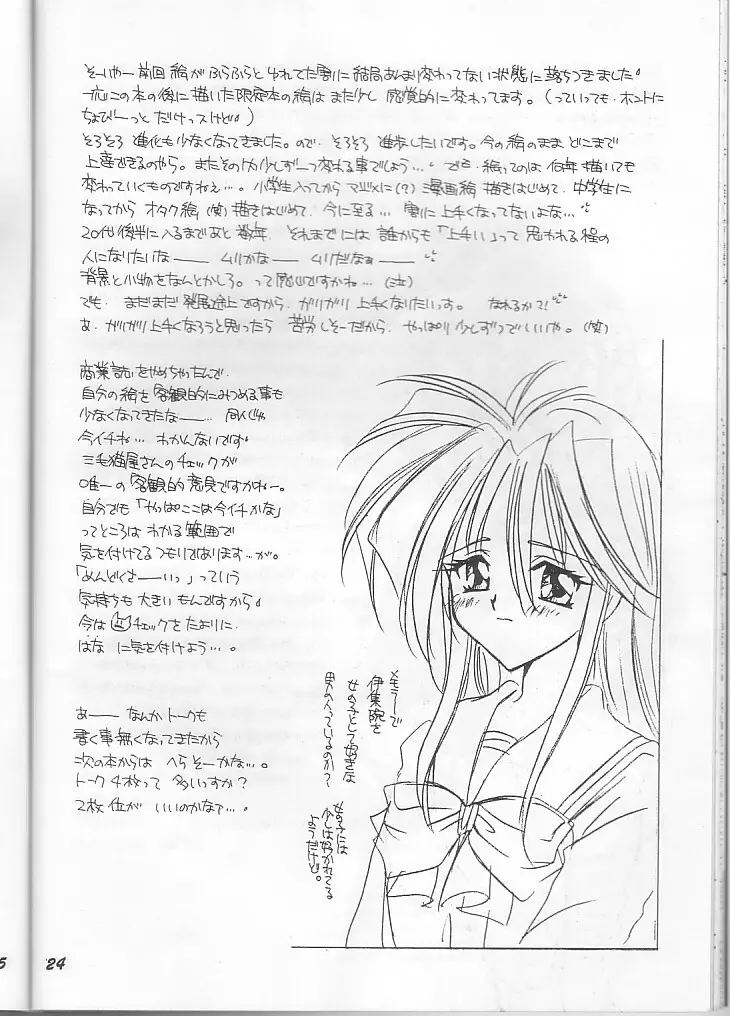 そーいやー前回 絵が ふらふらと ゆれてた割に 結局あんまり変わってない状態に落ちつきました。
一応この本の後に描いた限定本の絵は また少し 感覚的に変わってます。(っていっても・ホントに
ちょび〜っと だけっスけど。)
そろそろ 進化も少なくなってきました。ので・そろそろ 進歩したいです。今の絵のまま どこまで
上達できるのやら。またその内少しずーつ変わる事でしょう…。でも・絵ってのは 何年描いても
変わっていくものですねぇ…。小学生入ってから マジメに(?) 漫画絵 描きはじめて・中学生に
なってから オタク絵(笑)描きはじめて・今に至る… 割に上手くなってないよな…
20代後半に入るまであと数年・それまでには 誰からも「上手い」って思われる程の
人になりたいなーー ムリかなー ムリだなぁー
背景と小物をなんとかしろ。って感じですかね…(泣)
でも・まだまだ発展途上ですから・ガリガリ上手くなりたいっす。なれるか?!
あ・ガリガリ上手くなろうと思ったら 苦労しそーだから・やっぱり少しずつでいいや。(笑)
商業誌をやめちゃったんで・
自分の絵を客観的にみつめる事も
少なくなってきたなー…・同人じゃ
今イチね…わかんないです。
三毛猫屋さんのチェックが
唯一の客観的意見ですかねー。
自分でも「やっぱここは今イチかな」
ってところは わかる範囲で
気を付けてるつもりではあります…が。
「めんどくさーーいっ」っていう
気持ちも 大きい もんですから。
今は チェックをたよりに
はな に気を付けよう…。
あーー なんかトークも
書く事無くなってきたから
次の本からは へらそーかな…。
トーク4枚って 多いっすか?
2枚位が いいのかなァ…。
メモラーで
伊集院を
女の子として好きな
男の人っているのか?
女の子には
少しは好かれてる
ようだけど。
24
5